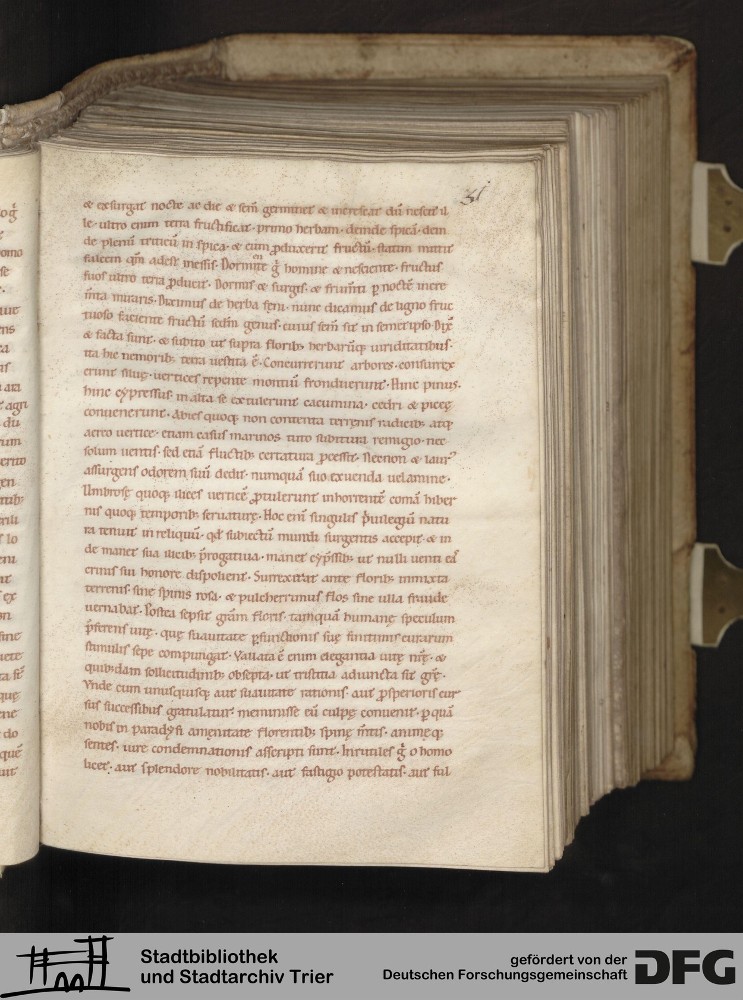 31
& exsurgat nocte ac die & sem̄ germinet & increscat dū nescit il
le· ultro enim terra fructificat· primo herbam· deinde spicā· dein
de plenū triticū in spica· & cum ꝓduxerit fructū· statim mittit
falcem qm̄ adest messis· Dormiente g̊ homine & nesciente· fructus
suos ultro terra ꝓducit· Dormis & surgis· & frum̄ti ꝑ noctē incre
m̄ta miraris· Diximus de herba feni· nunc dicamus de ligno fruc
tuoso faciente fructū sedm̄ genus· cuius sem̄ sit in semetipso· Dix̄
& facta sunt· & subito ut supra florib; herbarūq; uiriditatibus·
ita hic nemorib; terra uestita ē· Concurrerunt arbores· consurrex
erunt siluę· uertices repente montiū fronduerunt· Hinc pinus·
hinc cypressus· in alta se extulerunt cacumina· cedri & piceę
conuenerunt· Abies quoq; non contenta terrenis radicib; atq;
aereo uertice· etiam casus marinos tuto subitura remigio· nec
solum uentis· sed etiā fluctib; certatura ꝓcessit· Necnon & laurꝰ
assurgens odorem suū dedit· numquā suo exuenda uelamine·
Umbrosę quoq; ilices uerticē ꝓtulerunt inhorrentē comā hiber
nis quoq; temporib; seruaturę· Hoc em̄ singulis p̄uilegiū natu
ra tenuit in reliquū· qđ subiectū mundi surgentis accepit· & in
de manet sua ilicib; p̄rogatiua· manet cyp̄ssib; ut nulli uenti eā
crinis sui honore dispolient· Surrexerat ante florib; inmixta
terrenis· sine spinis rosa· & pulcherrimus flos sine ulla fraude
uernabat· Postea sepsit gr̄am floris· tamquā humanę speculum
p̄ferens uitę· quę suauitate ꝑfunctionis suę finitimis curarum
stimulis sepe compungat· Vallata ē enim elegantia uitę nr̄ę· &
quib;dam sollicitudinib; obsepta· ut tristitia adiuncta sit gr̄ę·
Vnde cum unusquisq; aut suauitate rationis· aut ꝓsperioris cur
sus successibus gratulatur· meminisse eū culpę conuenit· ꝑ quā
nobis in paradysi amęnitate florentib; spinę m̄tis· animęq;
sentes· iure condemnationis asscripti sunt· Inrutiles g̊ o homo
licet· aut splendore nobilitatis· aut fastigio potestatis· aut ful
Stadtbibliothek
und Stadtarchiv Trier
gefördert von der
Deutschen Forschungsgemeinschaft
DFG